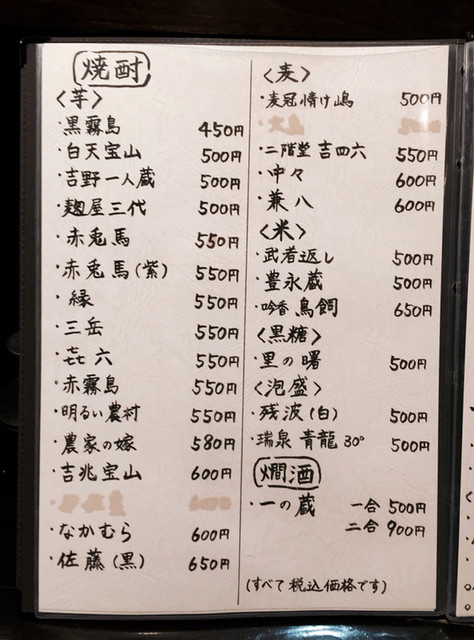 焼酎
〈芋〉
・黒霧島 450円
・白天宝山 500円
・吉野一人蔵 500円
・麹屋三代 500円
・赤兎馬 550円
・赤兎馬(紫) 550円
・縁 550円
・三岳 550円
・㐂六 550円
・赤霧島 550円
・明るい農村 550円
・農家の嫁 580円
・吉兆宝山 600円
・なかむら 600円
・佐藤(黒) 650円
〈麦〉
・麦冠情け嶋 500円
・二階堂 吉四六 550円
・中々 600円
・兼八 600円
〈米〉
・武者返し 500円
・豊永蔵 500円
・吟香 鳥飼 650円
〈黒糖〉
・里の曙 500円
〈泡盛〉
・残波(白) 500円
・瑞泉 青龍 30° 500円
燗酒
・一の蔵 一合 500円
二合 900円
(すべて税込価格です)